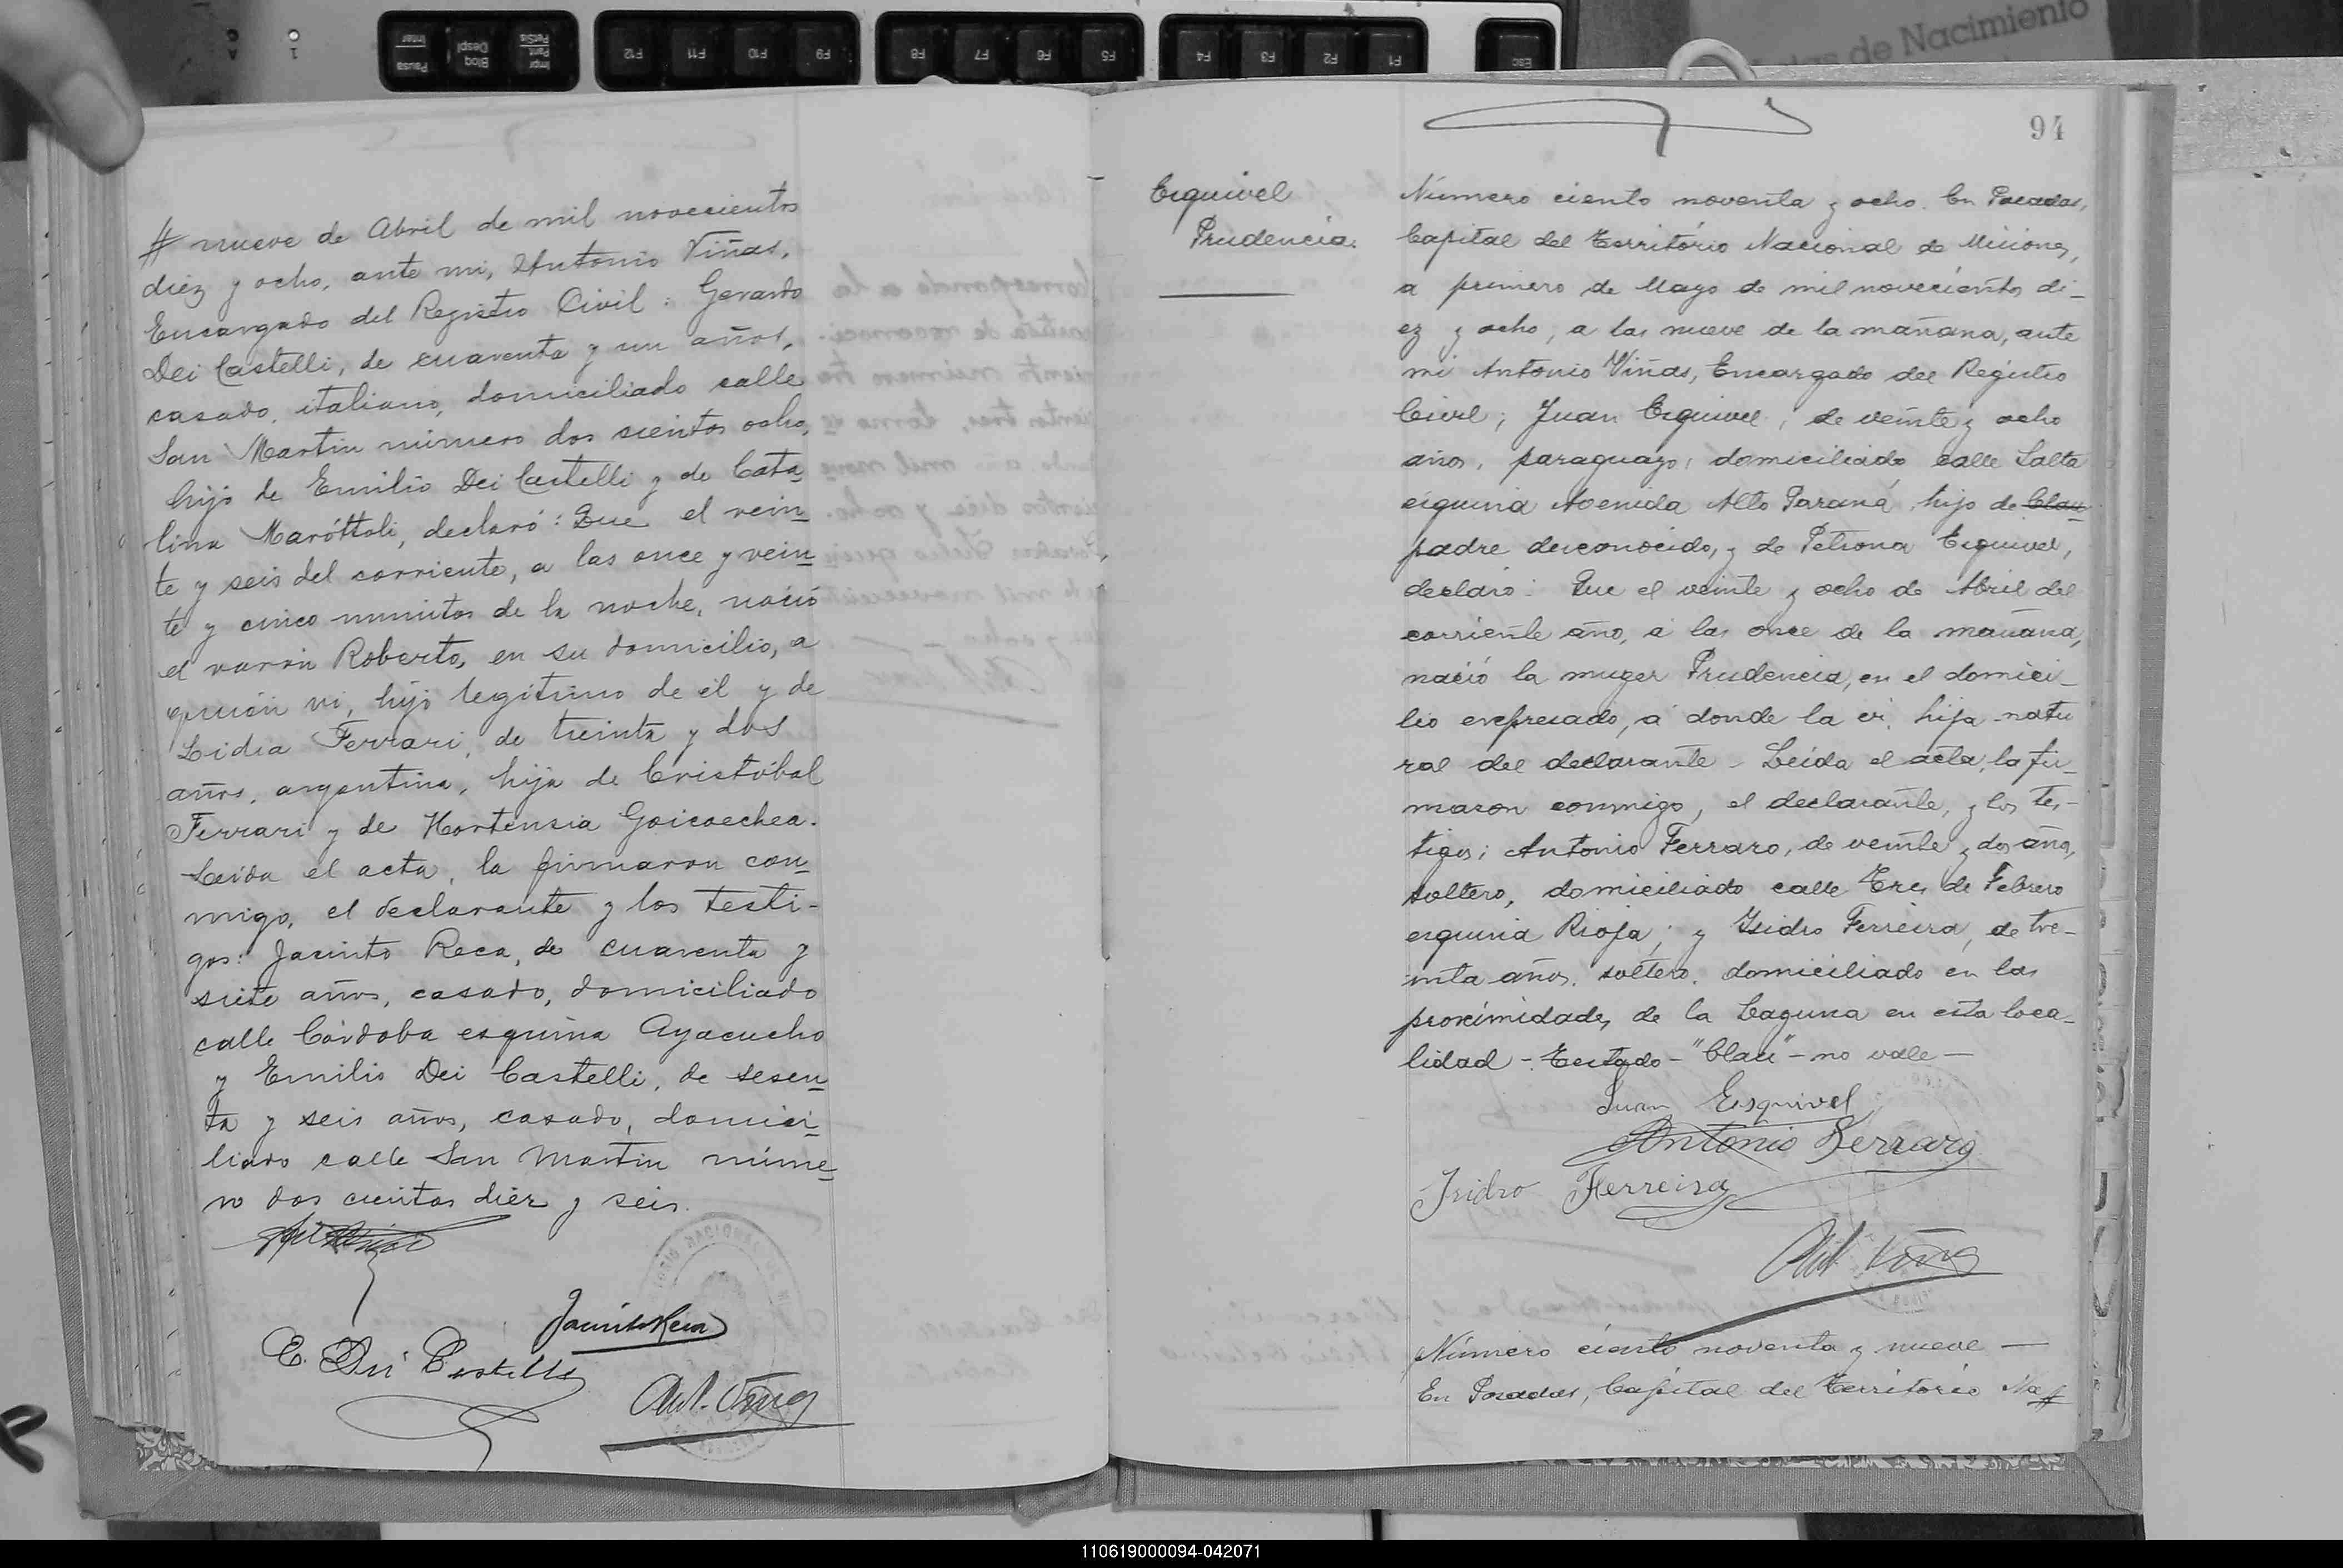 Pausa
Inter
Bloq
Despl
Impr
Pant
PetSis
F12
F11
F10
F9
F8
F7
F6
F5
F4
F3
F2
F1
Esc
de Nacimiento
# nueve de Abril de mil novecientos
diez y ocho, ante mi, Antonio Viñas,
Encargado del Registro Civil: Gerardo
Dei Castelli, de cuarenta y un años,
casado, italiano, domiciliado calle
San Martin número dos cientos ocho,
hijo de Emilio Dei Castelli y de Cata
lina Maróttoli, declaró: Que el vein
te y seis del corriente, a las once y vein
te y cinco minutos de la noche, nació
el varón Roberto, en su domicilio, a
quién vi, hijo legitimo de él y de
Lidia Ferrari, de treinta y dos
años, argentina, hija de Cristóbal
Ferrari y de Hortensia Goicoechea.
Leida el acta, la firmaron con
migo, el declarante y los testi-
gos: Jacinto Reca, de cuarenta y
siete años, casado, domiciliado
calle Córdoba esquina Ayacucho
y Emilio Dei Castelli, de sesen
ta y seis años, casado, domici
liado calle San Martin núme
ro dos cientos diez y seis.
Jacinto Reca
E. Dei Castelli
Ant. Viñas
94
Esquivel
Prudencia.
Número ciento noventa y ocho. En Posadas,
Capital del Territorio Nacional de Misiones,
a primero de Mayo de mil novecientos di-
ez y ocho, a las nueve de la mañana, ante
mi Antonio Viñas, Encargado del Registro
Civil; Juan Esquivel, de veinte y ocho
años, paraguayo, domiciliado calle Salta
esquina Avenida Alto Paraná, hijo de Clau
padre desconocido, y de Petrona Esquivel,
declaró: Que el veinte y ocho de Abril del
corriente año, a las once de la mañana,
nació la muger Prudencia, en el domici-
lio expresado, a donde la vi, hija natu
ral del declarante - Leida el acta, la fir-
maron conmigo, el declarante, y los tes-
tigos; Antonio Ferraro, de veinte y dos años,
soltero, domiciliado calle Tres de Febrero
esquina Rioja; y Isidro Ferreira, de tre-
inta años, soltero, domiciliado en las
proximidades de la Laguna en esta loca-
lidad - Testado - "Clau" - no vale -
Juan Esquivel
Antonio Ferraro
Isidro Ferreira
Ant. Viñas
Número ciento noventa y nueve -
En Posadas, Capital del Territorio Na#
110619000094-042071